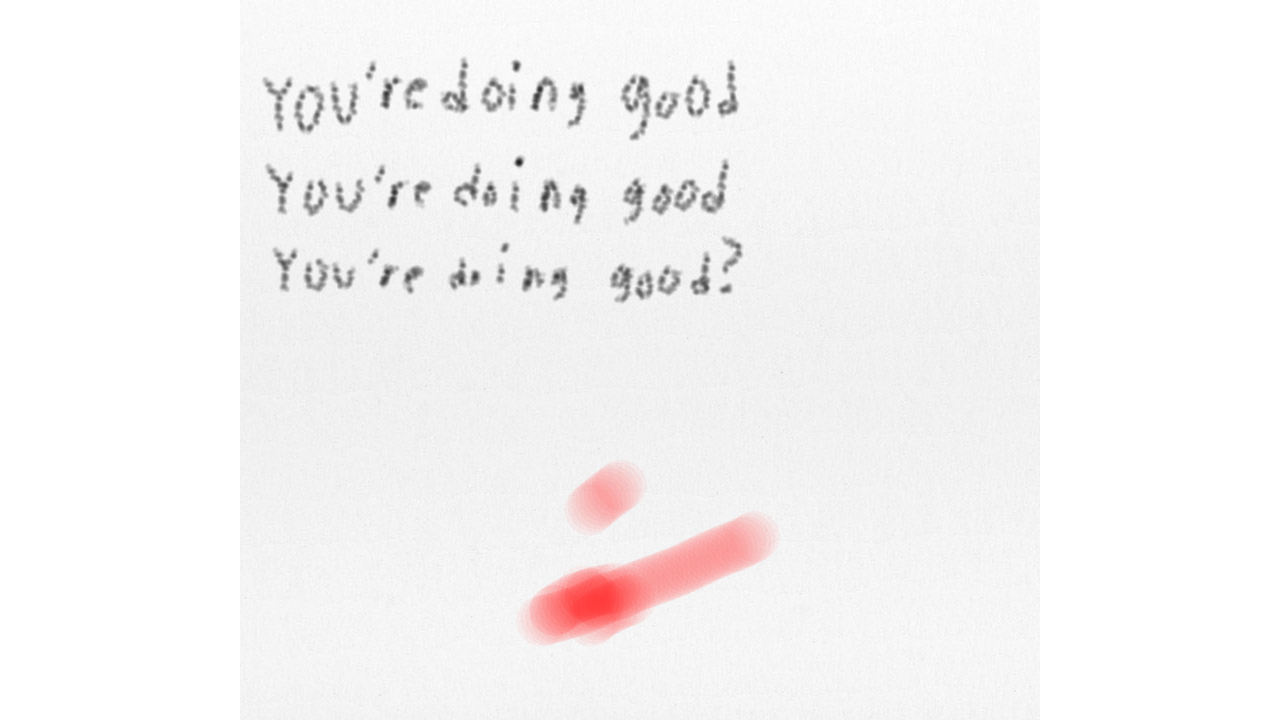 You're doing good
You're doing good
You're doing good?